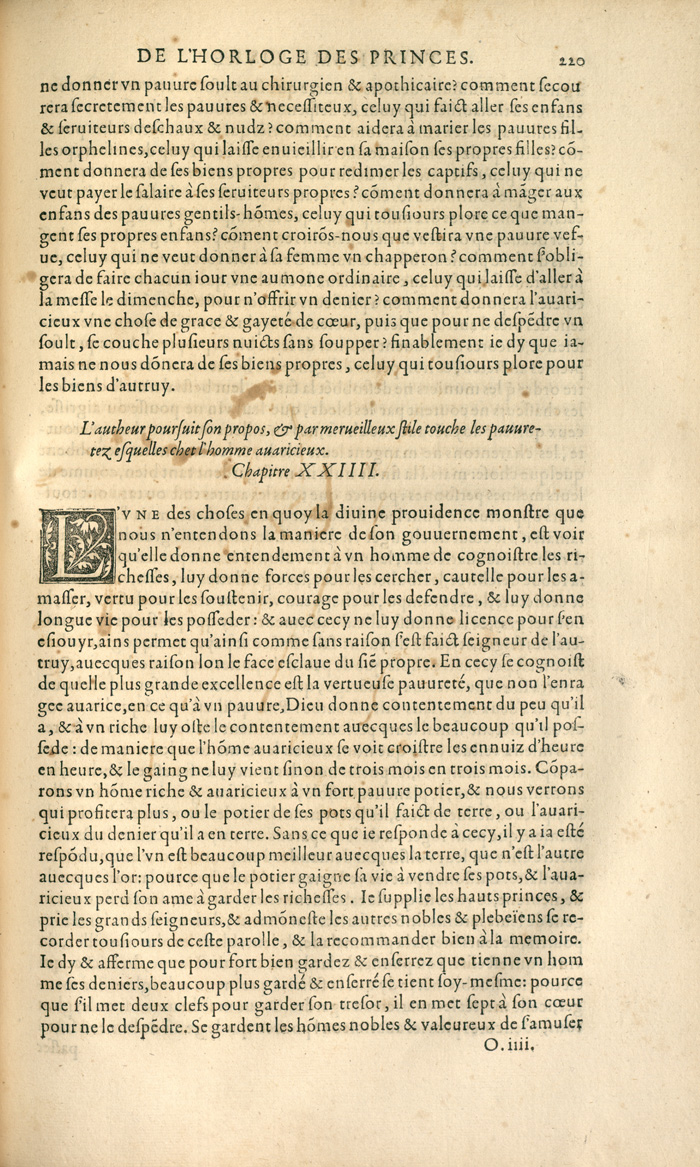 DE L'HORLOGE DES PRINCES. 220
ne donner vn pauure ſoult au chirurgien & apothicaire? comment ſecou
rera ſecretement les pauures & neceſſiteux, celuy qui faict aller ſes enfans
& ſeruiteurs deſchaux & nudz? comment aidera à marier les pauures fil-
les orphelines, celuy qui laiſſe enuieillir en ſa maiſon ſes propres filles? cō-
ment donnera de ſes biens propres pour redimer les captifs, celuy qui ne
veut payer le ſalaire à ſes ſeruiteurs propres? cōment donnera à māger aux
enfans des pauures gentils-hōmes, celuy qui touſiours plore ce que man-
gent ſes propres enfans? cōment croirōs-nous que veſtira vne pauure vef-
ue, celuy qui ne veut donner à ſa femme vn chapperon? comment ſ'obli-
gera de faire chacun iour vne aumone ordinaire, celuy qui laiſſe d'aller à
la meſſe le dimenche, pour n'offrir vn denier? comment donnera l'auari-
cieux vne choſe de grace & gayeté de cœur, puis que pour ne deſpēdre vn
ſoult, ſe couche pluſieurs nuicts ſans ſoupper? finablement ie dy que ia-
mais ne nous dōnera de ſes biens propres, celuy qui touſiours plore pour
les biens d'autruy.
L'autheur pourſuit ſon propos, & par merueilleux ſtile touche les pauure-
tez eſquelles chet l'homme auaricieux.
Chapitre XXIIII.
L'VNE des choſes en quoy la diuine prouidence monſtre que
nous n'entendons la maniere de ſon gouuernement, eſt voir
qu'elle donne entendement à vn homme de cognoiſtre les ri-
cheſſes, luy donne forces pour les cercher, cautelle pour les a-
maſſer, vertu pour les ſouſtenir, courage pour les defendre, & luy donne
longue vie pour les poſſeder: & auec cecy ne luy donne licence pour ſ'en
eſiouyr, ains permet qu'ainſi comme ſans raiſon ſ'eſt faict ſeigneur de l'au-
truy, auecques raiſon lon le face eſclaue du ſiē propre. En cecy ſe cognoiſt
de quelle plus grande excellence eſt la vertueuſe pauureté, que non l'enra
gee auarice, en ce qu'à vn pauure, Dieu donne contentement du peu qu'il
a, & à vn riche luy oſte le contentement auecques le beaucoup qu'il poſ-
ſede: de maniere que l'hōme auaricieux ſe voit croiſtre les ennuiz d'heure
en heure, & le gaing ne luy vient ſinon de trois mois en trois mois. Cōpa-
rons vn hōme riche & auaricieux à vn fort pauure potier, & nous verrons
qui profitera plus, ou le potier de ſes pots qu'il faict de terre, ou l'auari-
cieux du denier qu'il a en terre. Sans ce que ie reſponde à cecy, il y a ia eſté
reſpōdu, que l'vn eſt beaucoup meilleur auecques la terre, que n'eſt l'autre
auecques l'or: pource que le potier gaigne ſa vie à vendre ſes pots, & l'aua-
ricieux perd ſon ame à garder les richeſſes. Ie ſupplie les hauts princes, &
prie les grands ſeigneurs, & admōneſte les autres nobles & plebeïens ſe re-
corder touſiours de ceſte parolle, & la recommander bien à la memoire.
Ie dy & afferme que pour fort bien gardez & enſerrez que tienne vn hom
me ſes deniers, beaucoup plus gardé & enſerré ſe tient ſoy-meſme: pource
que ſ'il met deux clefs pour garder ſon treſor, il en met ſept à ſon cœur
pour ne le deſpēdre. Se gardent les hōmes nobles & valeureux de ſ'amuſer
O.iiii.